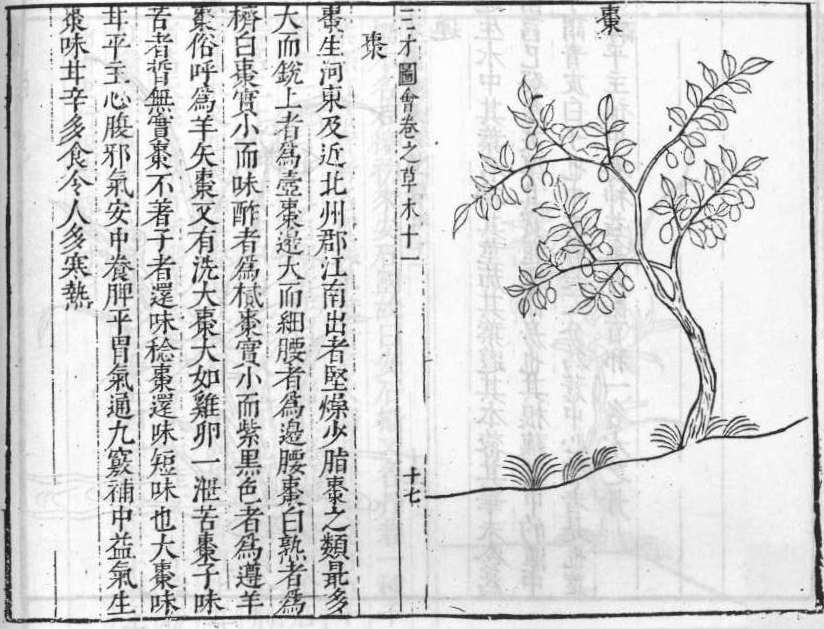 棗
三才圖會卷之草木十一
十七
棗
棗生河東及近北州郡江南出者堅燥少脂棗之類最多
大而銳上者為壺棗邊大而細腰者為邊腰棗白熟者為
櫅白棗實小而味酢者為樲棗實小而紫黑色者為遵羊
棗俗呼為羊矢棗又有洗大棗大如雞卵一泄苦棗子味
苦者晳無實棗不著子者還味稔棗還味短味也大棗味
甘平主心腹邪氣安中養脾平胃氣通九竅補中益氣生
棗味甘辛多食令人多寒熱